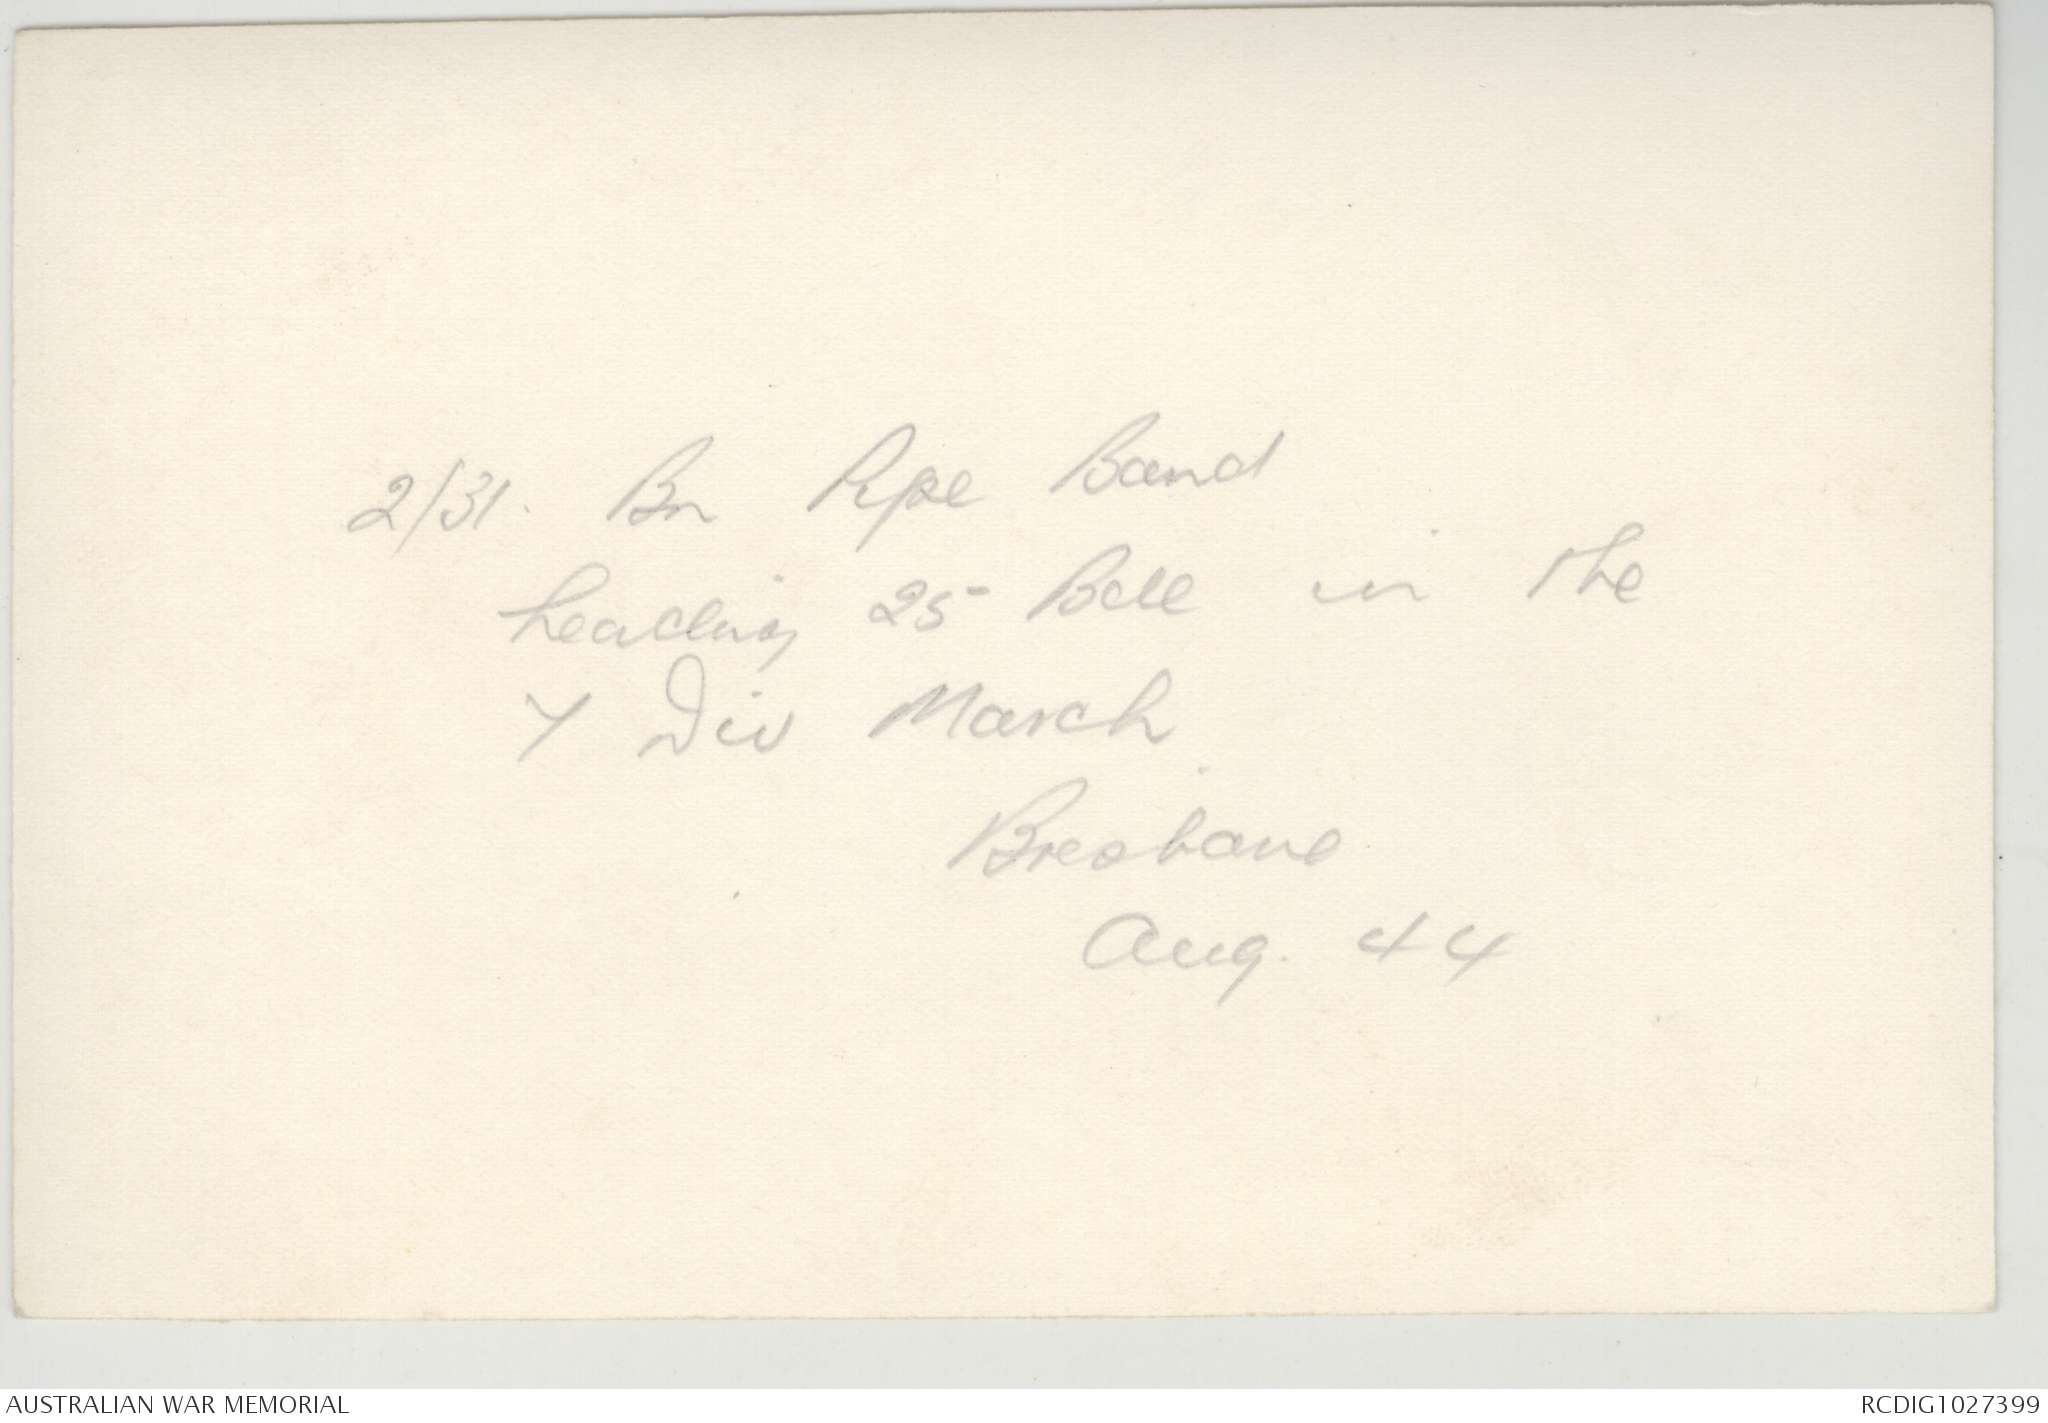 2/31. Bn Pipe Band
heading 25 Bde in the
7 Div March
Brisbane
Aug. 44
AUSTRALIAN WAR MEMORIAL
RCDIG1027399